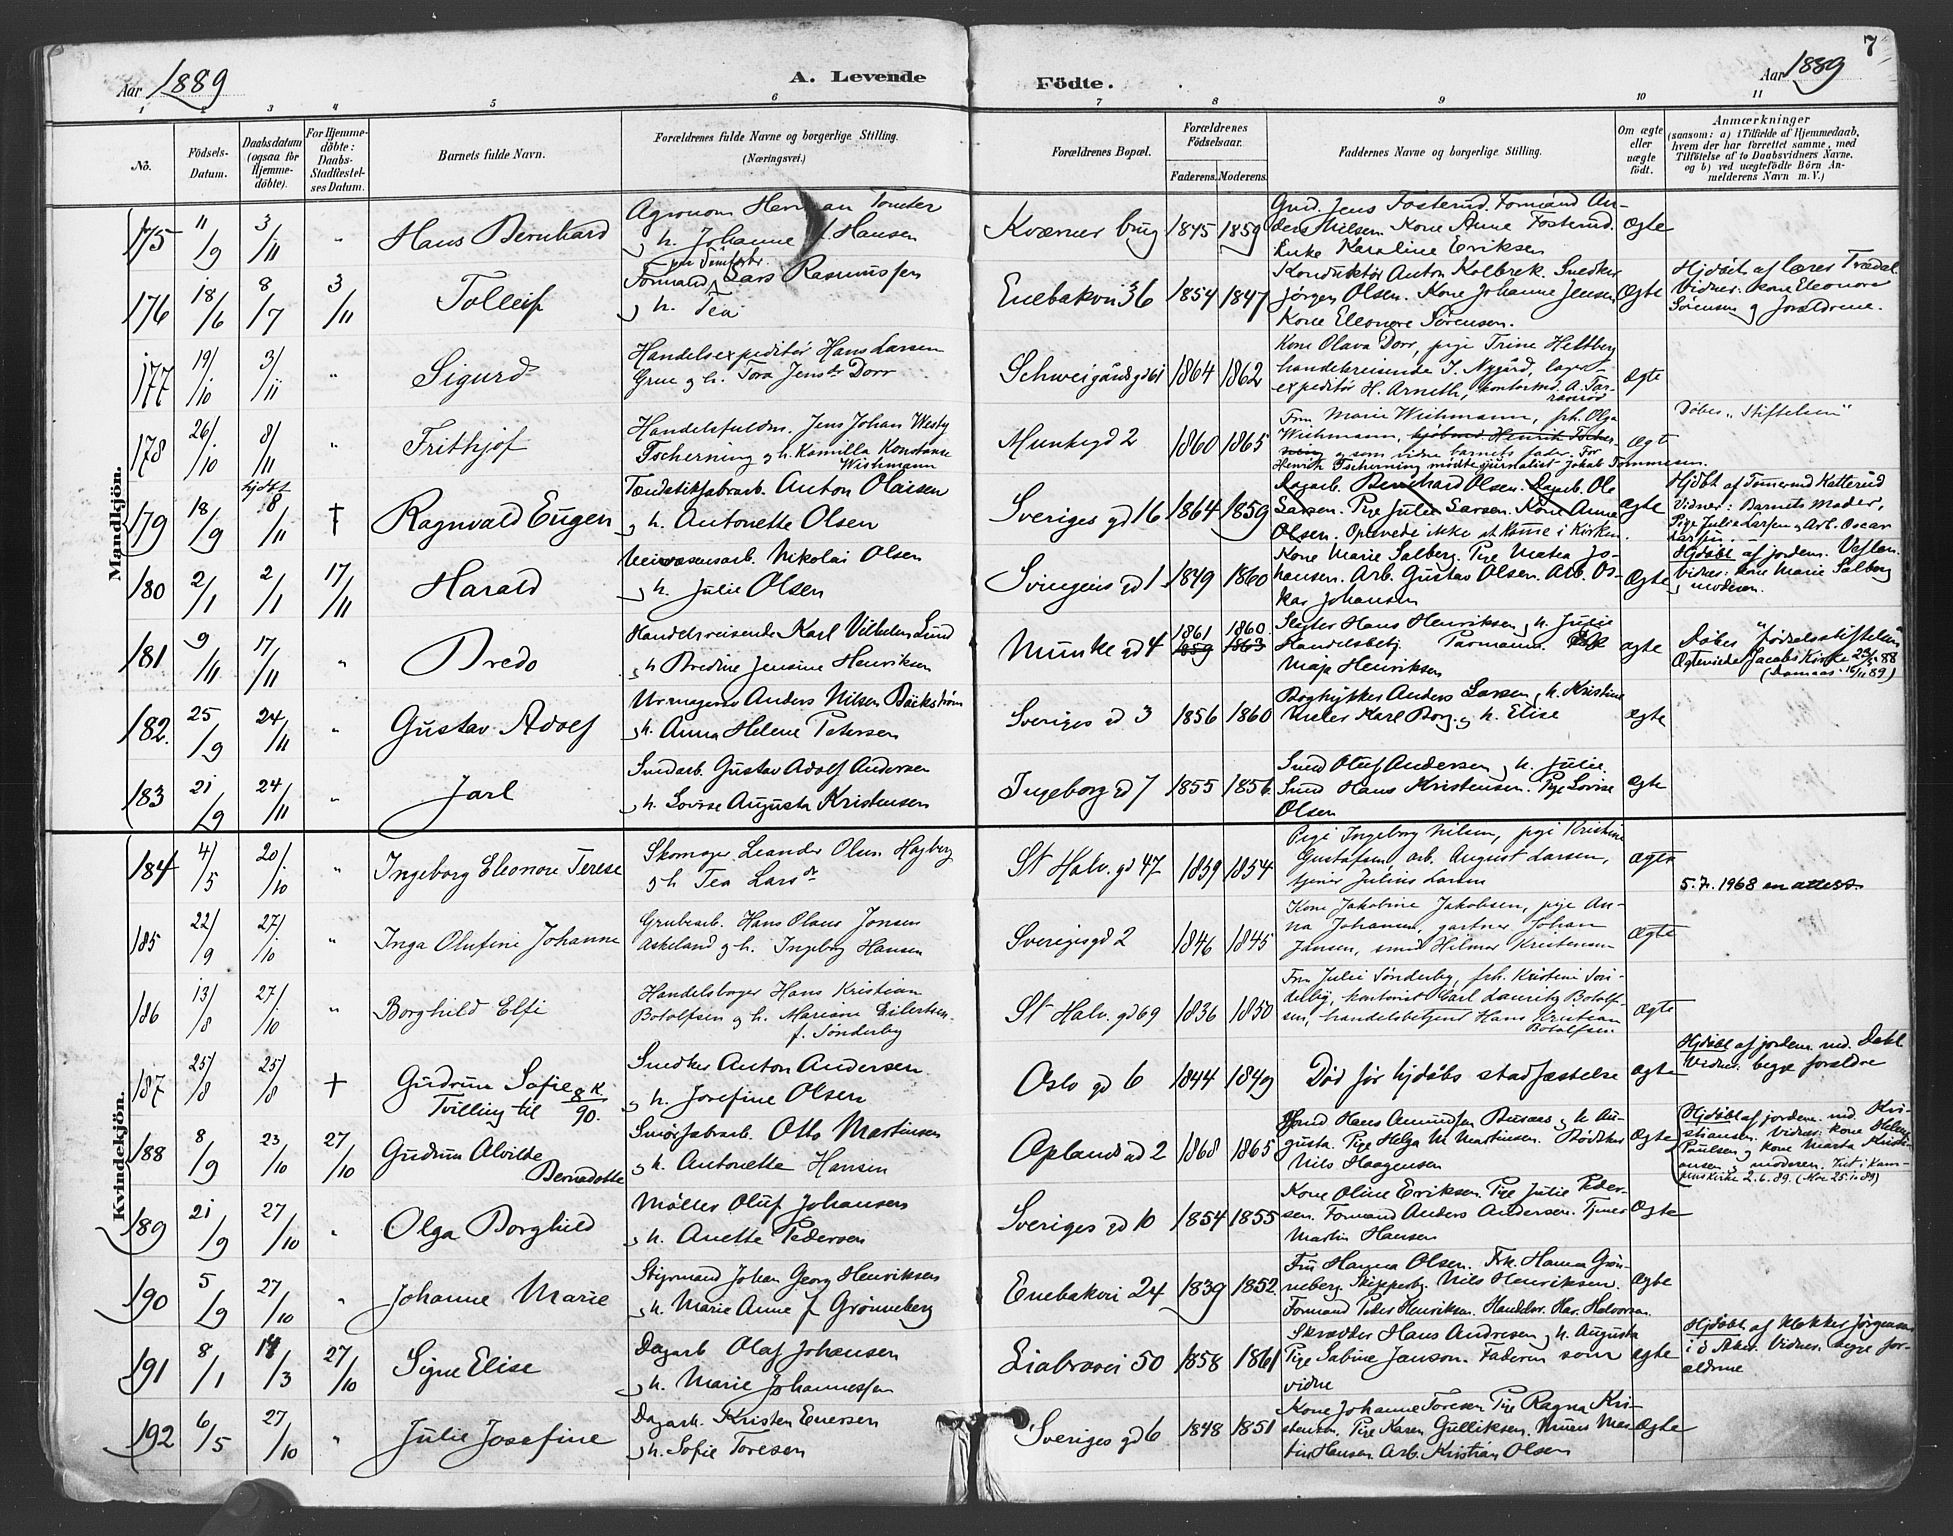 7
Aar 1889
A. Levende
Födte.
Aar 1889
1 2 3 4 5 6 7 8 9 10 11
No.
Födsels-Datum.
Daabsdatum (ogsaa for Hjemme-döbte).
For Hjemme-döbte: Daabs-Stadfæstelses Datum.
Barnets fulde Navn.
Forældrenes fulde Navne og borgerlige Stilling. (Næringsvei.)
Forældrenes Bopæl.
Forældrenes Födselsaar.
Faderens. Moderens.
Faddernes Navne og borgerlige Stilling.
Om ægte eller uægte födt.
Anmærkninger
(saasom: a) i Tilfælde af Hjemmedaab, hvem der har forrettet samme, med Tilföielse af to Daabsvidners Navne, og b) ved uægtefödte Börn Anmelderens Navn m. V.)
Mandkjön.
175 11/9 3/11 " Hans Bernhard
Agronom Herman Tomter
og h. Johanne Hansen
Kværner brug 1845 1859
Gmd. Jens Fosterud. Formand An-
ders Nilsen. Kone Anne Fosterud.
Enke Karoline Eriksen
Ægte
176 18/6 8/7 3/11 Tolleif
Formand Lars Rasmussen
og h. Tea
Enebakvei 36 1854 1847
Konduktør Anton Kolbrek. Snedker
Jørgen Olsen. Kone Johanne Jensen
Kone Eleonore Sørensen.
Ægte
Hjdøbt af lærer Trædal
Vidner: kone Eleonore
Sørensen og forældrene.
177 19/10 3/11 " Sigurd
Handelsexpeditør Hans Larsen
Grue og h. Tora Jensdr Dorr
Schweigårdsgd 61 1864 1862
Kone Olava Dorr, pige Trine Heltberg
handelsreisende I. Nygård, lager-
expeditør H. Arneth, kontorist A. Tar-
Ægte
178 26/10 8/11 " Frithjof
Handelsfuldm. Jens Johan Westy
Tscherning og h. Kamilla Konstanse
Wishmann
Munkegd 2 1860 1865
Fru Marie Wishmann, frk. Olga
Wishmann, kjøbmd Henrik Tscher-
ning og som vidne barnets fader. For
Henrik Tscherning mødte journalist Jakob Tommesen.
Ægte
Døbt "Stiftelsen"
179 18/9 hjdøbt 8/11 † Ragnvald Eugen
Tændstikfabrarb. Anton Olaisen
og h. Antonette Olsen
Sveriges gd 16 1864 1859
Dagarb. Bernhard Olsen. Dagarb. Ole
Larsen. Pige Julie Larsen. Kone Anne
Olsen. Opnåede ikke at komme i Kirken.
Ægte
Hjdøbt af Tømmermd Katterud
Vidner: Barnets Moder,
Pige Julie Larsen og Arb. Oscar
Larsen.
180 2/1 2/1 17/11 Harald
Veivæsensarb. Nikolai Olsen
og h. Julie Olsen
Svingens gd 1 1849 1860
Kone Marie Salberg. Pige Matea Jo-
hansen. Arb. Gustav Olsen. Arb. Os-
kar Johansen
Ægte
Hjdøbt af jordem. Veflen.
Vidner: Kone Marie Salberg
og moderen.
181 9/11 17/11 " Bredo
Handelsreisende Karl Vilhelm Lund
og h. Bredine Jensine Henriksen
Munke gd 4 1861 1859 1860 1863
Slagter Hans Henriksen og h. Julie
Handelsbetj. Parmann. Pige
Maja Henriksen
ægte
Døbt "Fødselsstiftelsen"
Ægteviede Jacobs Kirke 23/5 88
(Domaas 16/11 89)
182. 25/9 24/11 " Gustav Adolf
Urmager Anders Nilsen Bäckström
og h. Anna Helene Petersen
Sveriges gd 3 1856 1860
Boghykker Anders Larsen og h. Kristine
Maler Karl Borg og h. Elise
ægte
183 21/9 24/11 " Jarl
Smedarb. Gustav Adolf Andersen
og h. Lovise Augusta Kristensen
Ingeborg gd 7 1855 1856
Smed Oluf Andersen og h. Julie.
Smed Hans Kristensen. Pige Lovise
Olsen
ægte
Kvindekjön.
184 4/5 20/10 " Ingeborg Eleonore Terese
Skomager Leander Olsen Hagberg
og h Tea Larsdr
St Halv. gd 47 1839 1854
Pige Ingeborg Nilsen, pige Kristine
Gustafsen, arb. August Larsen,
tjener Julius Larsen
ægte
5.7.1968 en attest
185 22/9 27/10 " Inga Olufine Johanne
Grubearb. Hans Olaus Jonsen
Askeland og h. Ingeborg Hansen
Sverigesgd 2 1846 1845
Kone Jakobine Jakobsen, pige An-
na Johansen, gartner Johan
Jansen, smed Hilmar Kristensen
Ægte
186 13/8 27/10 " Borghild Elfi
Handelsborger Hans Kristian
Botolfsen og h. Mariane Eilertsen
f. Sønderby
St Halv. gd 69 1836 1850
Fru Julie Sønderby, frk. Kristine Søn-
derby, kontorist Carl Lauritz Botolf-
sen, handelsbetjent Hans Kristian
Botolfsen
Ægte
187 25/8 25/8 † Gudrun Sofie
Tvilling til 8 K. 90.
Snedker Anton Andersen
og h. Josefine Olsen
Oslo gd 6 1844 1849
Død før hjdøbs stadfæstelse
Ægte
Hjdøbt af jordem. md. Dahl
Vidner: begge forældre
188 8/9 23/10 27/10 Gudrun Alvilde
Bernadotte
Smørfabrarb. Otto Martinsen
og h. Antonette Hansen
Oplands gd 2 1868 1865
Smed Hans Amundsen Bursaas og h. Au-
gusta. Pige Helga M. Martinsen. Bødker
Nils Haagensen
Ægte
Hjdøbt af jordem. md. Kri-
stiansen. Vidner: kone Helene
Paulsen og kone Marta Kristi-
ansen og moderen. Viet i Kam-
penskirke 2.6.89.
189 21/9 27/10 " Olga Borghild
Møller Oluf Johansen
og h. Anette Pedersen
Sveriges gd 10 1854 1855
Kone Oline Eriksen. Pige Julie Peder-
sen. Formand Anders Andersen. Tjener
Martin Hansen
Ægte
190 5/9 27/10 " Johanne Marie
Styrmand Johan Georg Henriksen
og h. Marie Anne f. Grønneberg
Enebakvei 24 1839 1852
Fru Hanna Olsen. Frk. Hanna Grøn-
neberg. Skipperb. Nils Henriksen.
Formand Peder Henriksen. Handelsr. Har. Halvorsen
ægte
191 8/1 14/3 27/10 Signe Elise
Dagarb Olaf Johansen
og h. Marie Johannessen
Liabrovei 50 1858 1861
Skrædder Hans Andresen og h. Augusta
Pige Sabine Janson. Faderen som
vidne
ægte
Hjdøbt af klokker Jørgensen
i Ø. Aker. Vidner: begge for-
ældrene
192 6/5 27/10 " Julie Josefine
Dagarb. Kristen Enersen
og h. Sofie Toresen
Sveriges gd 6 1848 1851
Kone Johanne Toresen. Pige Ragna Kri-
stensen. Pige Karen Gulliksen. Murer Mar-
tin Hansen. Arb. Kristian Olsen
Ægte